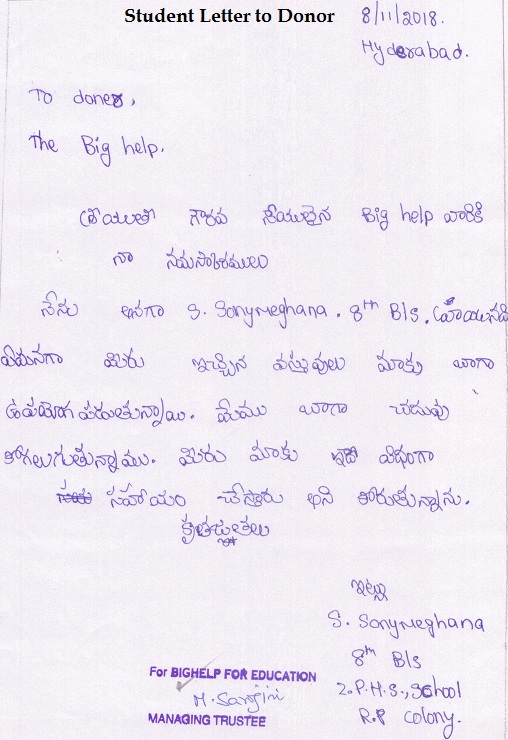 Student Letter to Donor
8/11/2018.
Hyderabad.
To doner,
The Big help.
శ్రీయుత గౌరవ నీయులైన Big help వారికి
నా నమస్కారములు
నేను అనగా S. Sonymeghana. 8th Bls. వ్రాయునది
ఏమనగా మీరు ఇచ్చిన వస్తువులు మాకు బాగా
ఉపయోగ పడుతున్నాయి. మేము బాగా చదువు
కోగలుగుతున్నాము. మీరు మాకు ఇదే విధంగా
సహాయం చేస్తారు అని కోరుతున్నాను.
కృతజ్ఞతలు
ఇట్లు
S. Sonymeghana
8th Bls
Z.P.H.S., School
R.P colony.
For BIGHELP FOR EDUCATION
MANAGING TRUSTEE